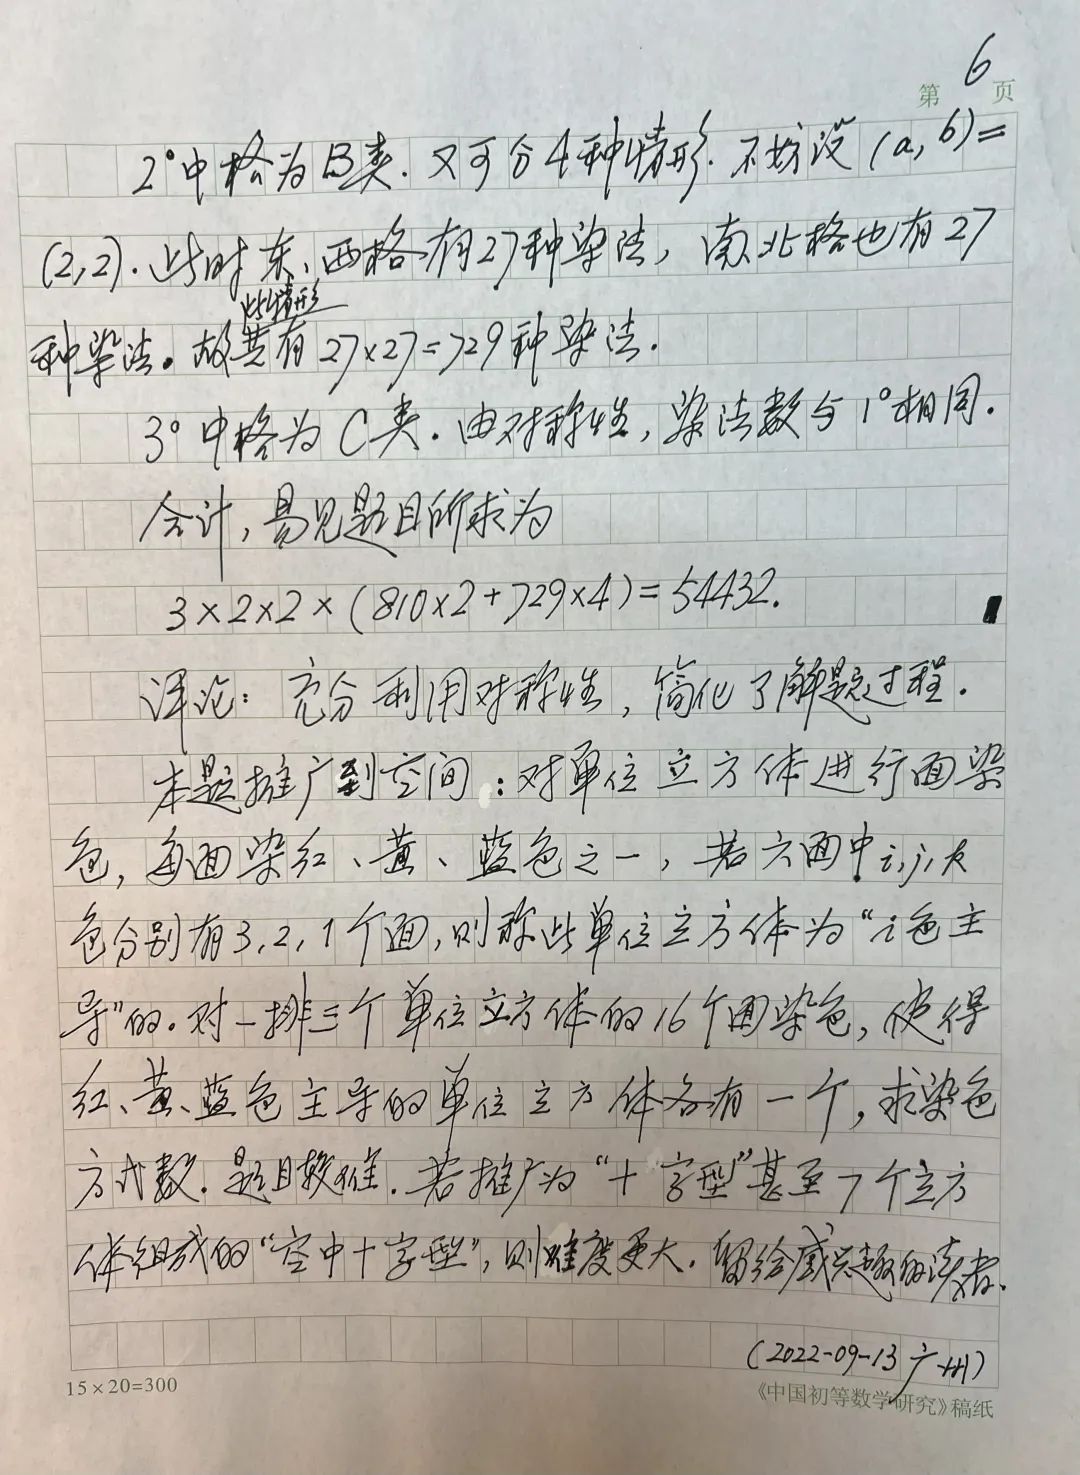 第6页
2°中格为B类.又可分4种情形.不妨设(a,b)=
(2,2).此时东、西格有27种染法,南、北格也有27
此情形
种染法。故共有27×27=729种染法.
3°中格为C类.由对称性,染法数与1°相同.
合计,易见题目所求为
3×2×2×(810×2+729×4)=54432.
评论:充分利用对称性,简化了解题过程.
本题推广到空间:对单位立方体进行面染
色,每面染红、黄、蓝色之一,若六面中i,j,k
色分别有3,2,1个面,则称此单位立方体为“i色主
导”的.对一排三个单位立方体的16个面染色,使得
红、黄、蓝色主导的单位立方体各有一个,求染色
方式数.题目较难.若推广为“十字型”甚至7个立方
体组成的“空中十字型”,则难度更大.留给感兴趣的读者.
(2022-09-13广州)
15×20=300
《中国初等数学研究》稿纸